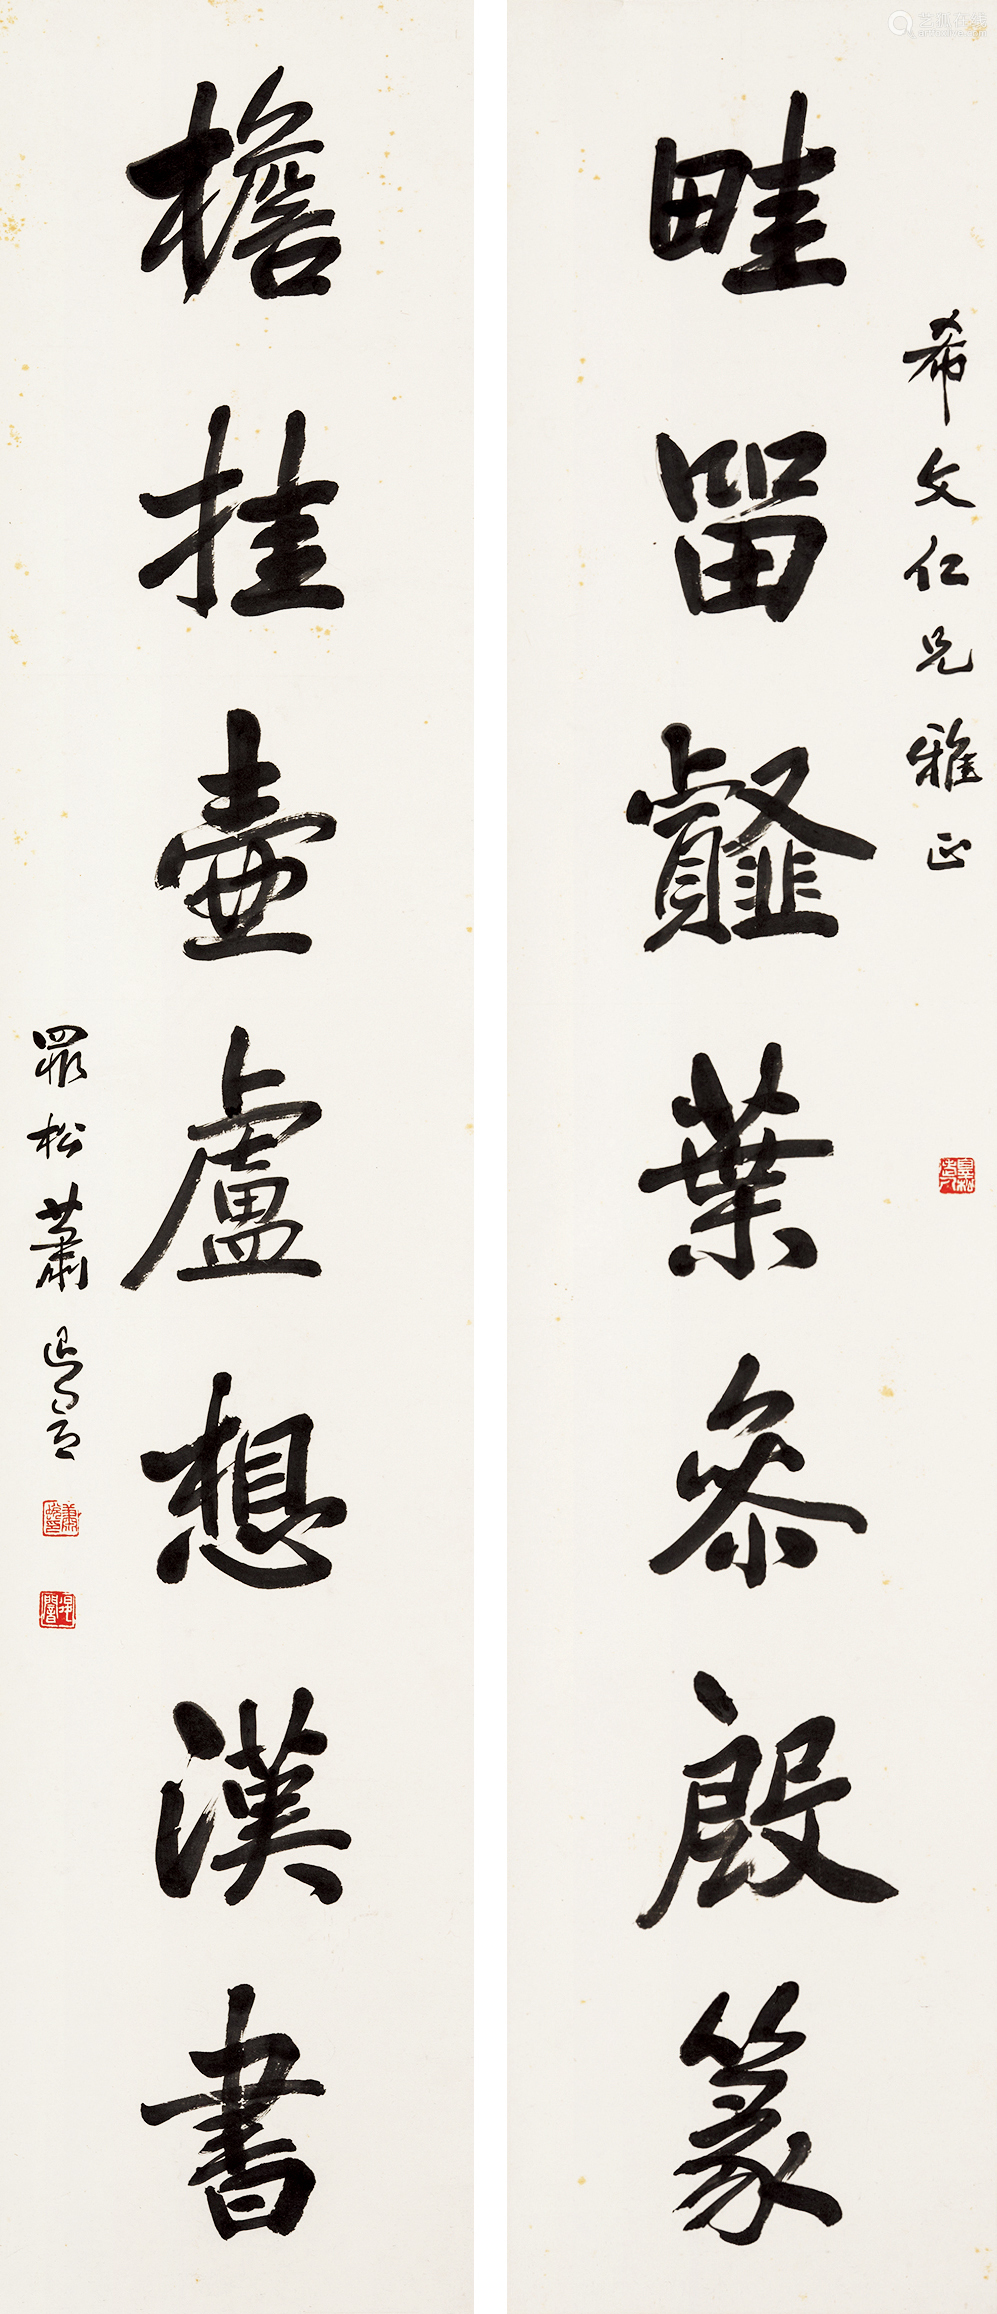 希文仁兄雅正
畦留䪥葉叅殷篆
檐挂壺盧想漢書
罤松蕭退闇